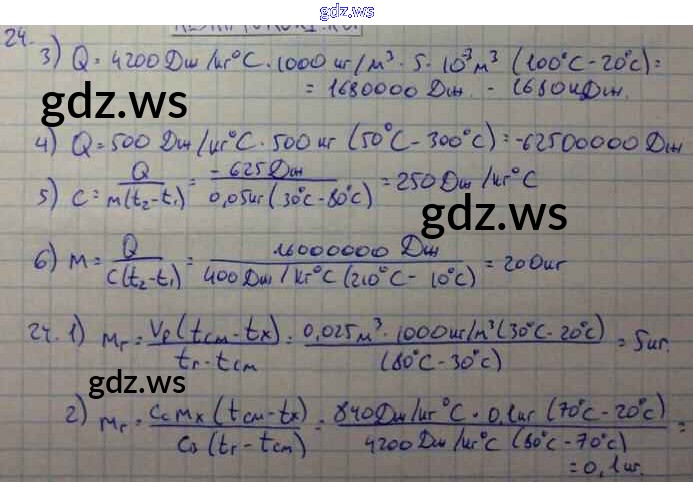 gdz.ws
24.
3) Q = 4200 Дж/кг°C · 1000 кг/м³ · 5 · 10⁻³ м³ (100°C - 20°C) =
= 1680000 Дж. - 1680 кДж.
gdz.ws
4) Q = 500 Дж/кг°C · 500 кг (50°C - 300°C) = -62500000 Дж
5) C = Q / m(t₂ - t₁) = -625 Дж / 0,05 кг (30°C - 80°C) = 250 Дж/кг°C
gdz.ws
6) m = Q / C(t₂ - t₁) = 16000000 Дж / 400 Дж/кг°C (210°C - 10°C) = 200 кг
24. 1) mг = Vρ(tсм - tх) / tг - tсм = 0,025 м³ · 1000 кг/м³ (30°C - 20°C) / (80°C - 30°C) = 5 кг.
gdz.ws
2) mг = Cс mх (tсм - tх) / Cв (tг - tсм) = 840 Дж/кг°C · 0,1 кг (70°C - 20°C) / 4200 Дж/кг°C (80°C - 70°C) =
= 0,1 кг.
gdz.ws